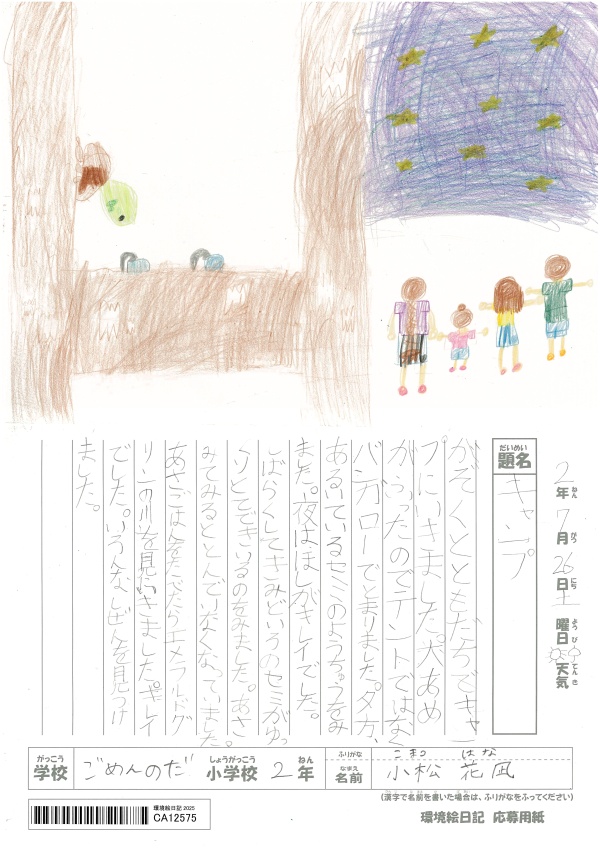 2年7月26日土曜日 天気
ねん がつ にち ようび てんき
だいめい
題名
キャンプ
かぞくとともだちでキャン
プにいきました。大あめ
がふったのでテントではなく
バンガローでとまりました。夕方、
あるいているセミのようちゅうをみ
ました。夜はほしがキレイでした。
しばらくしてきみどりいろのセミがゆっ
くりとでてきているのをみました。あさ
みてみるととんでいなくなっていました。
あさごはんをたべたらエメラルドグ
リーンの川を見にいきました。キレイ
でした。いろんなしぜんを見つけ
ました。
がっこう
学校
ごめんのだ
しょうがっこう
小学校
2
ねん
年
ふりがな
こまつ はな
なまえ
名前
小松 花凪
(漢字で名前を書いた場合は、ふりがなをふってください)
環境絵日記 2025
CA12575
環境絵日記 応募用紙